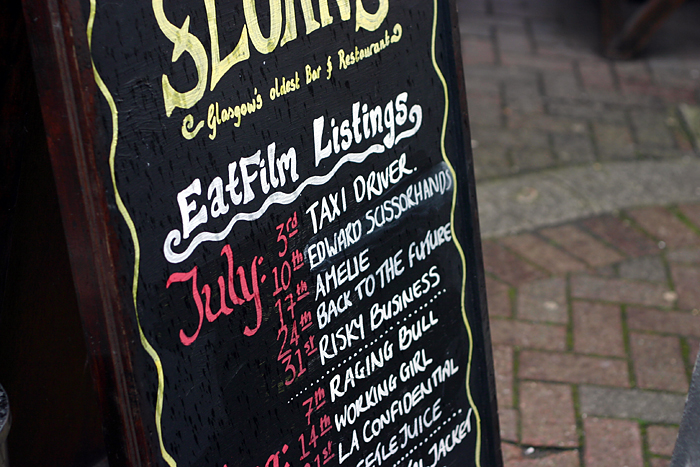 SLOANS
Glasgow's oldest Bar & Restaurant
EatFilm Listings
July:
3rd TAXI DRIVER.
10th EDWARD SCISSORHANDS
17th AMELIE
24th BACK TO THE FUTURE
31st RISKY BUSINESS
7th RAGING BULL
14th WORKING GIRL
LA CONFIDENTIAL
JUICE
JACKET